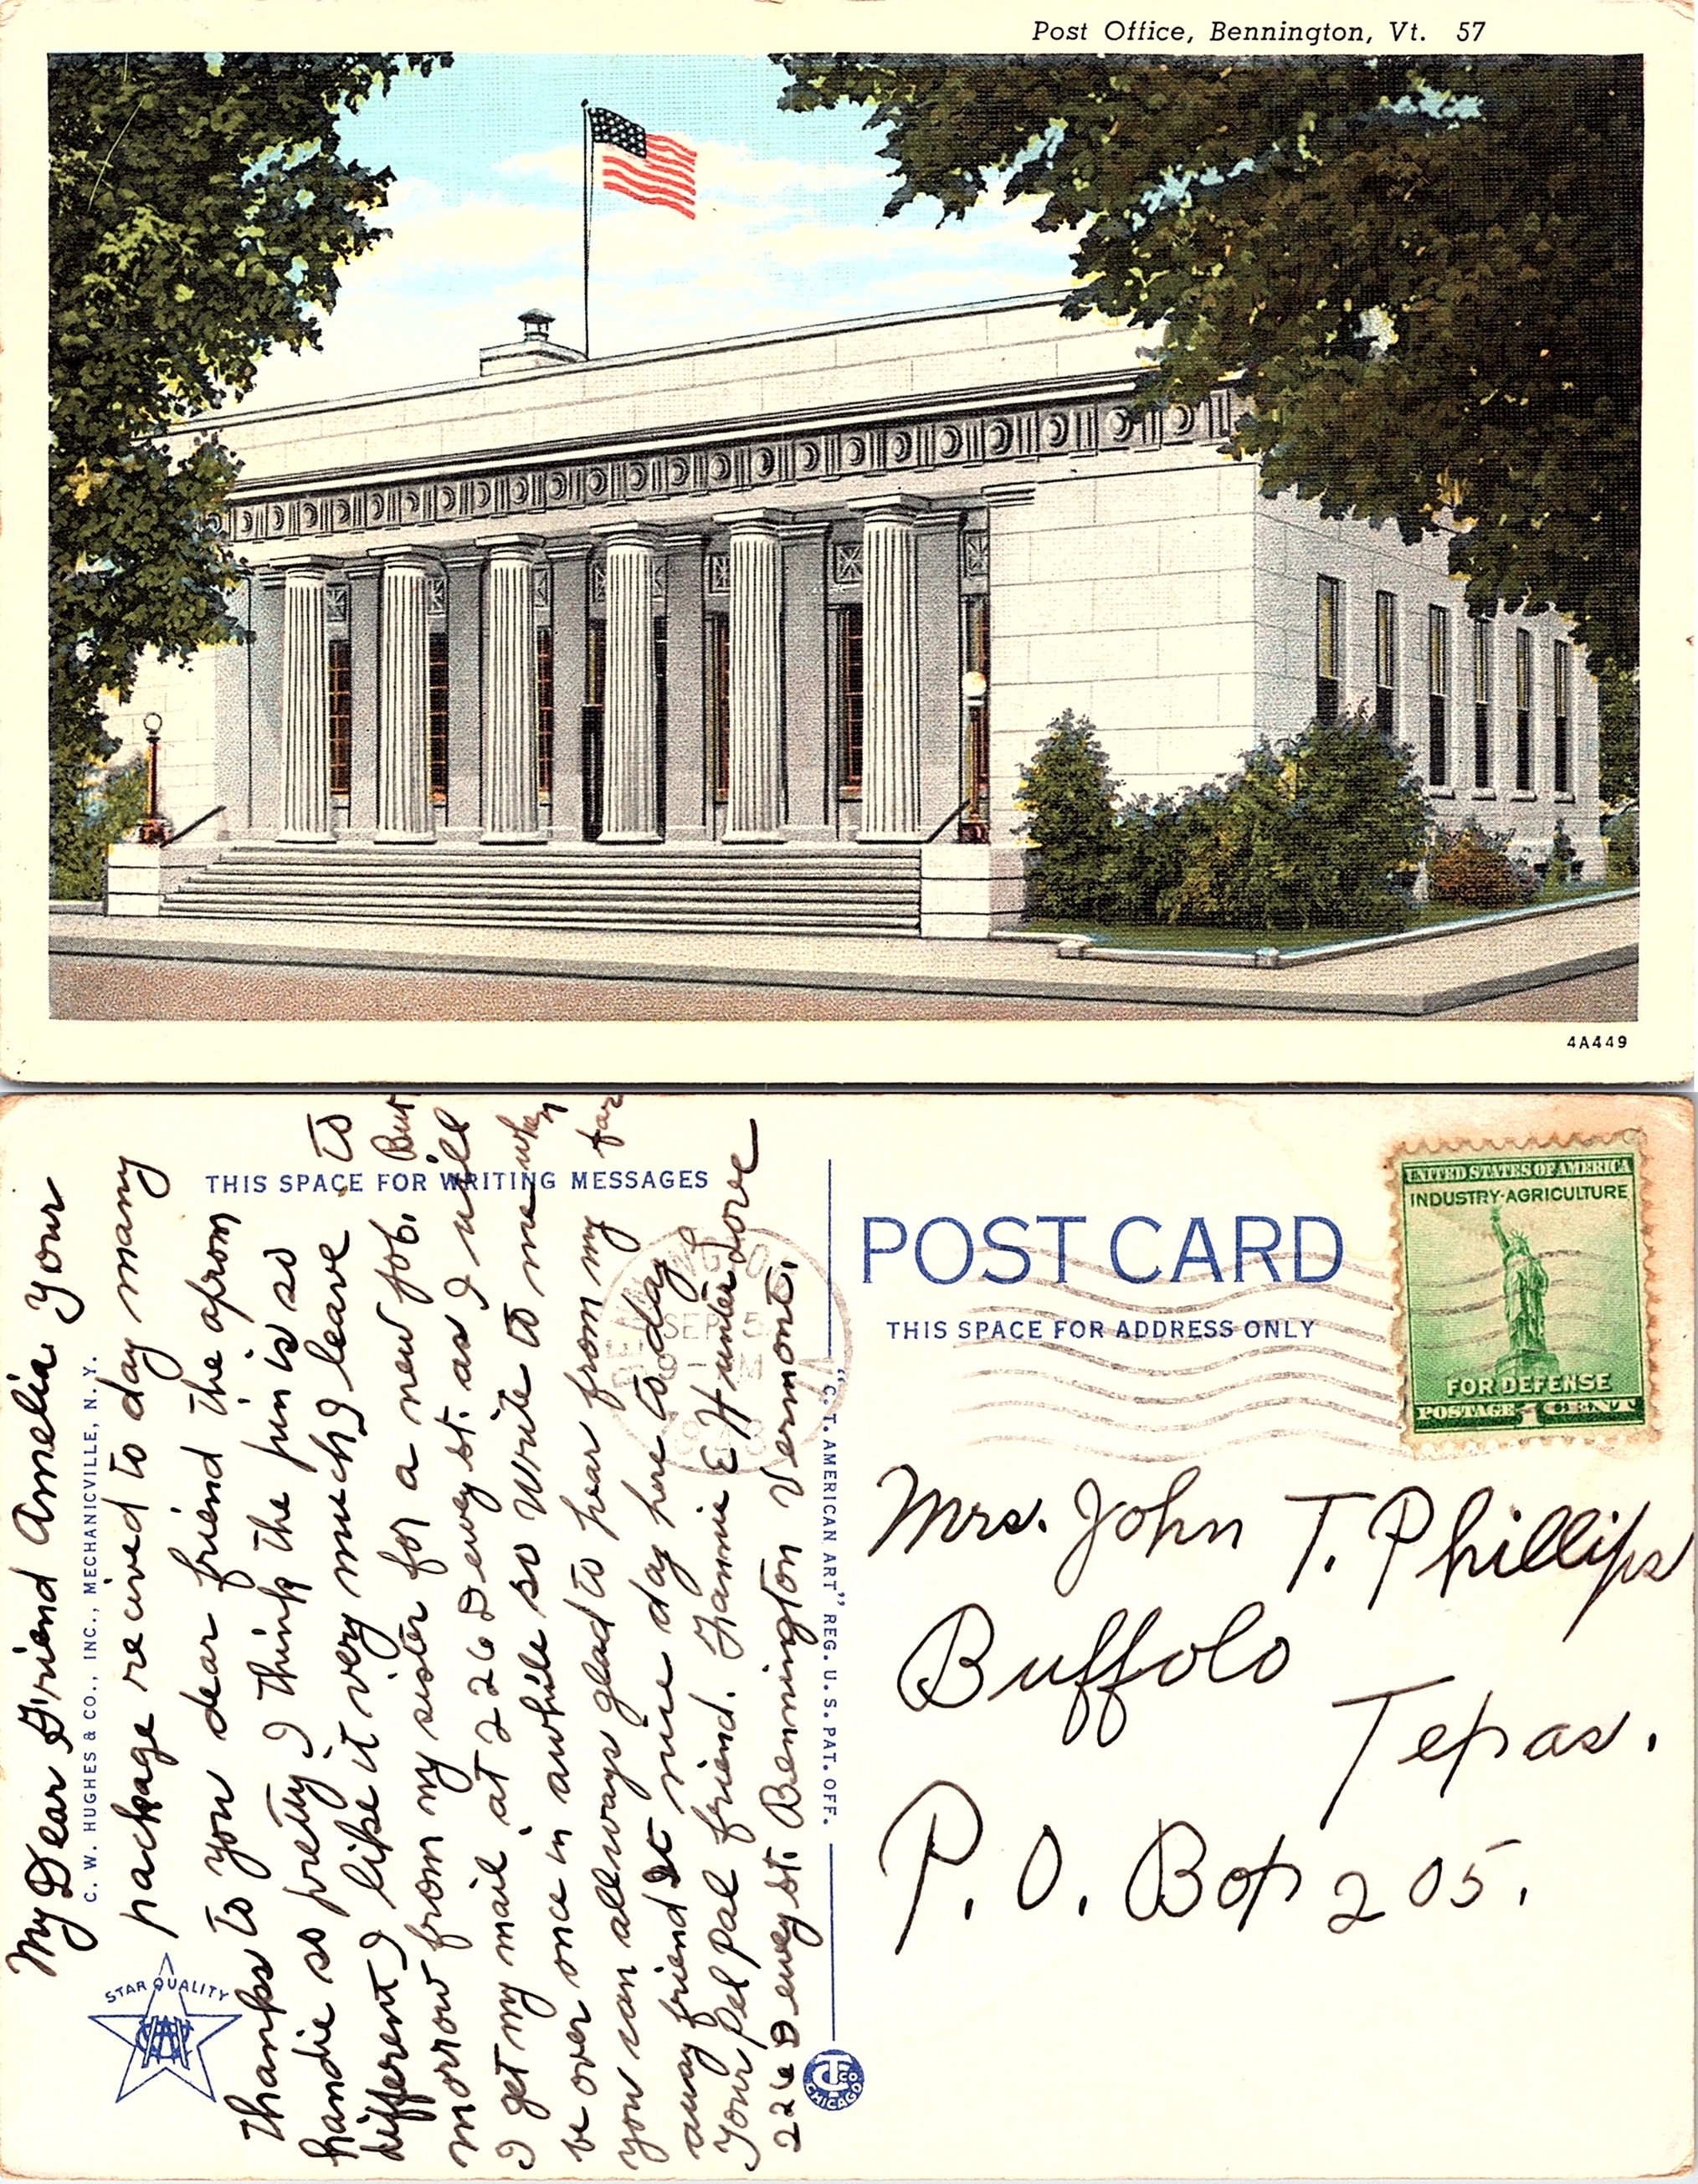 Post Office, Bennington, Vt. 57
4A449
THIS SPACE FOR WRITING MESSAGES
My Dear Friend Amelia Your
package received to day many
Thanks to you dear friend the apron
handie so pretty I think the pin is so
different I like it very much I leave to
morrow from my sister for a new job. But
I get my mail at 226 Dewey st. as I will
be over once in awhile so Write to me when
you can allways glad to hear from my far
away friend It nice day here to day
Your Pel pal friend. Fannie E Hunter Love
226 Dewey st. Bennington Vermont.
C. W. HUGHES & CO., INC., MECHANICVILLE, N. Y.
STAR QUALITY
"C. T. AMERICAN ART" REG. U. S. PAT. OFF.
CT CO
CHICAGO
BENNINGTON
SEP 5
POST CARD
THIS SPACE FOR ADDRESS ONLY
UNITED STATES OF AMERICA
INDUSTRY-AGRICULTURE
FOR DEFENSE
POSTAGE 1 CENT
Mrs. John T. Phillips
Buffolo
Texas.
P. O. Box 205.